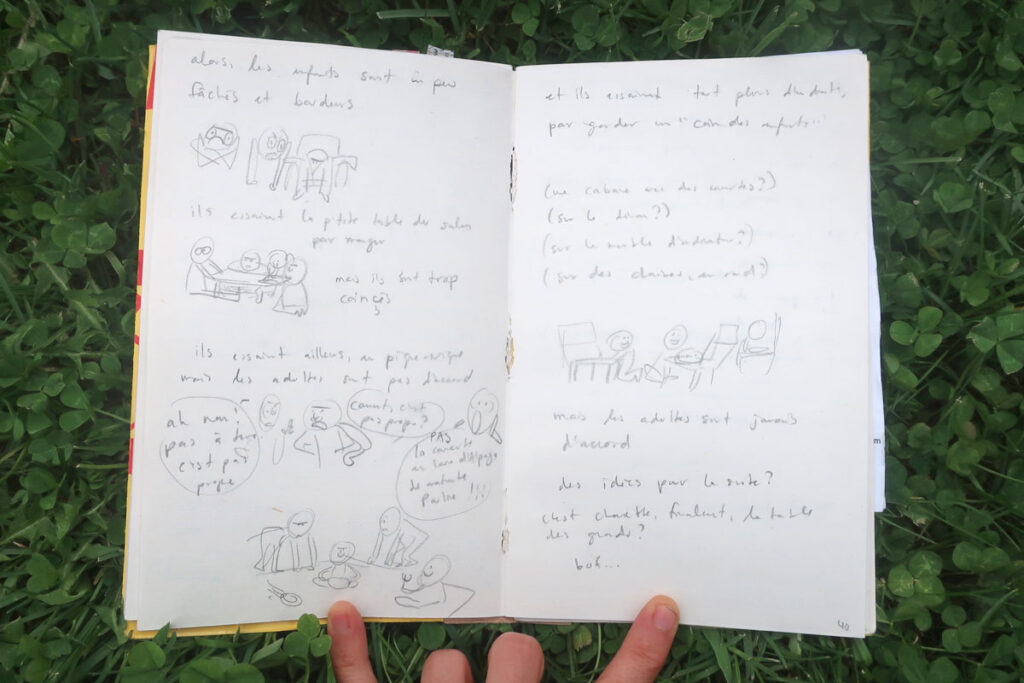 alors, les enfants sont un peu
fâchés et boudeurs
ils essaient la ptite table du salon
pour manger
mais ils sont trop
coinçés
ils essaient ailleurs, au pique-nique
mais les adultes sont pas d'accord
ah non!
pas à terre
c'est pas
propre
c'est
pas propre?
PAS
la couverte
en laine d'Alpaga
de matante
!!!
et ils essaient tout plein d'endroits,
pour garder un "coin des enfants"
(une cabane avec des couvertes?)
(sur le divan?)
(sur le meuble d'ordinateur?)
(sur des chaises, en rond?)
mais les adultes sont jamais
d'accord
des idées pour la suite?
c'est chouette, finalement, la table
des grands?
bof...
40
m